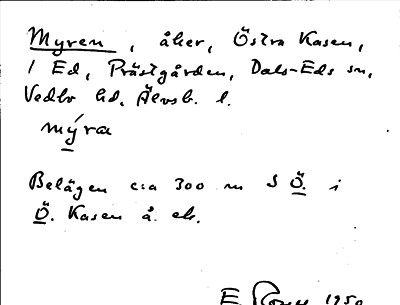 Myren, åker, Östra Kasen,
1 Ed, Prästgården, Dals-Eds sn,
Vedbo hd, Älvsb. l.
mýra
Belägen c:a 300 m S Ö. i
Ö. Kasen å. ek.
E. 1950